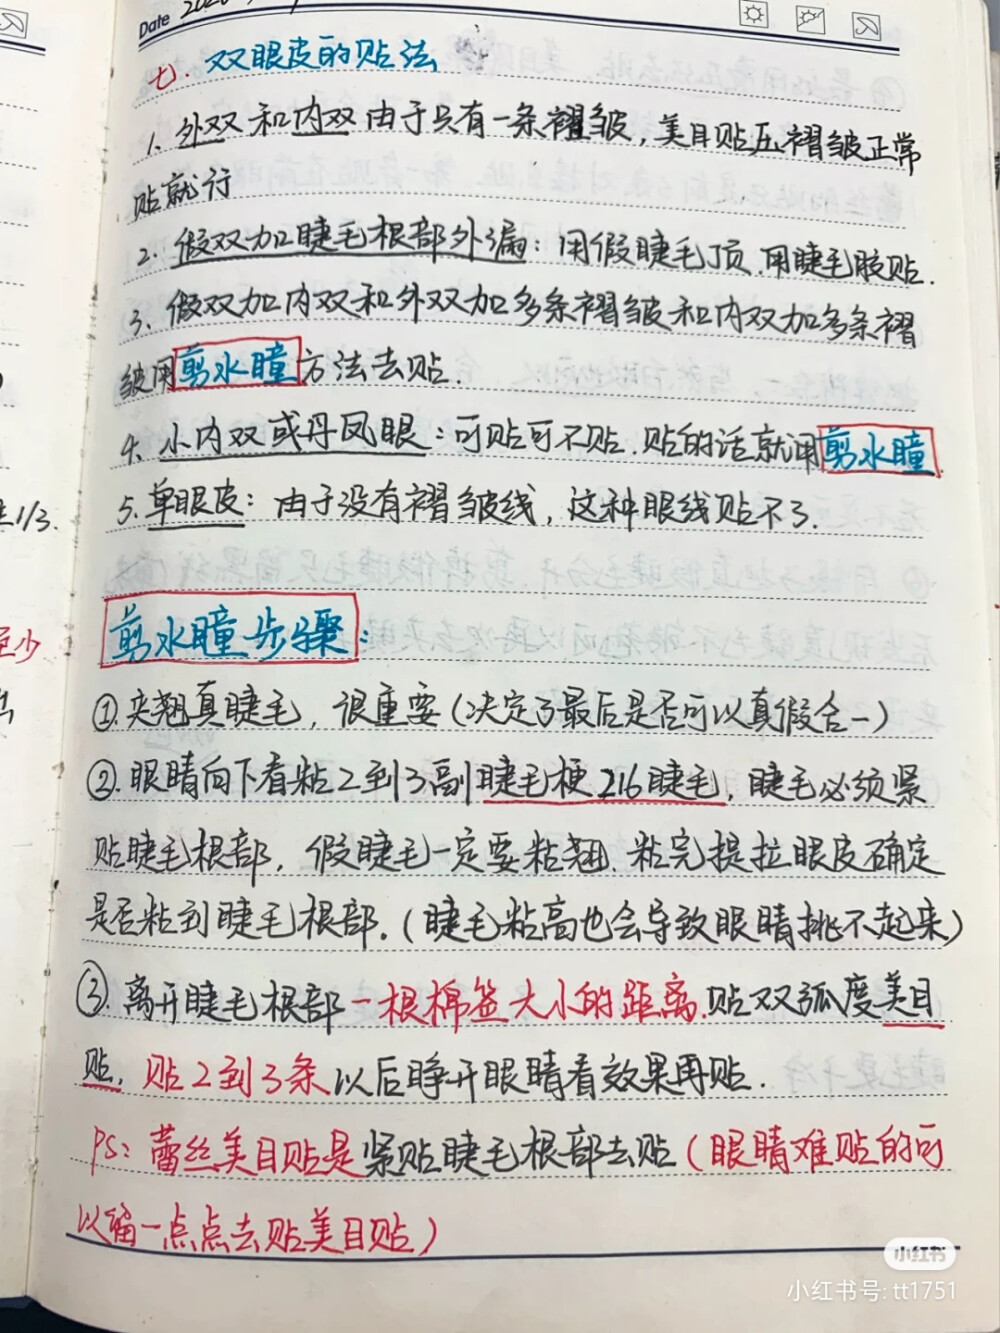 Date
七. 双眼皮的贴法
1. 外双和内双由于只有一条褶皱, 美目贴压褶皱正常
贴就行
2. 假双加睫毛根部外漏: 用假睫毛顶. 用睫毛胶贴.
3. 假双加内双和外双加多条褶皱和内双加多条褶
皱用剪水瞳方法去贴.
4. 小内双或丹凤眼: 可贴可不贴. 贴的话就用剪水瞳.
5. 单眼皮: 由于没有褶皱线, 这种眼线贴不了.
剪水瞳步骤:
①.夹翘真睫毛, 很重要(决定了最后是否可以真假合一)
②.眼睛向下看粘2到3副睫毛梗216睫毛, 睫毛必须紧
贴睫毛根部, 假睫毛一定要粘翘. 粘完提拉眼皮确定
是否粘到睫毛根部.(睫毛粘高也会导致眼睛挑不起来)
③.离开睫毛根部一根棉签大小的距离.贴双弧度美目
贴, 贴2到3条以后睁开眼睛看效果再贴.
PS: 蕾丝美目贴是紧贴睫毛根部去贴(眼睛难贴的可
以留一点点去贴美目贴)
1/3.
小红书
小红书号: tt1751